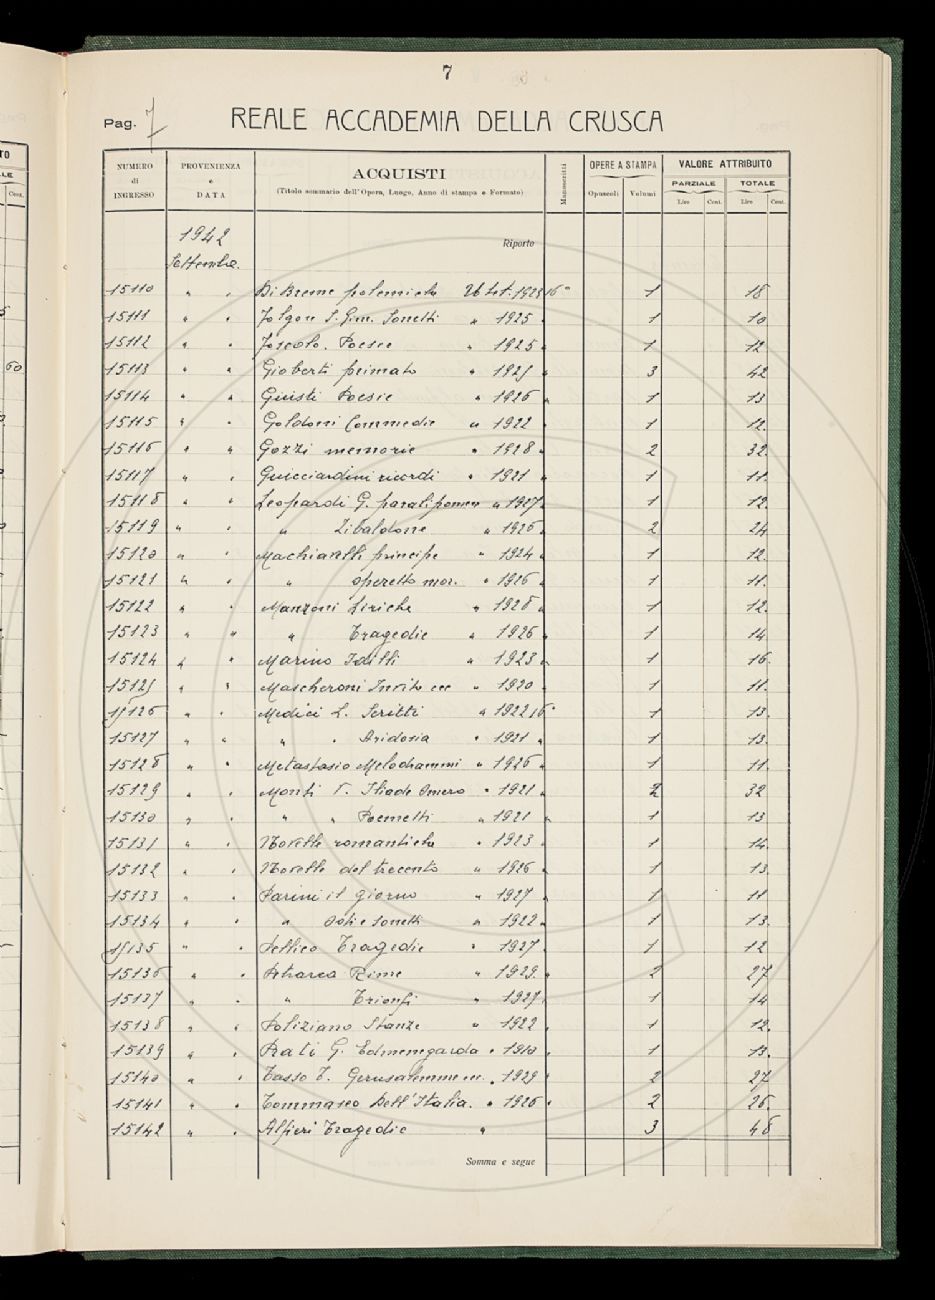 7
Pag. 7 REALE ACCADEMIA DELLA CRUSCA
NUMERO di INGRESSO PROVENIENZA e DATA ACQUISTI (Titolo sommario dell'Opera, Luogo, Anno di stampa e Formato) Manoscritti OPERE A STAMPA Opuscoli Volumi VALORE ATTRIBUITO PARZIALE Lire Cent. TOTALE Lire Cent.
1942 Riporto
Settembre.
15110 " " Di Breme polemiche Utet. 1923 16° 1 18
15111 " " Folgore S. Gim. Sonetti " 1925 " 1 10
15112 " " Foscolo. Poesie " 1925 " 1 12
15113 " " Gioberti primato " 1925 " 3 42
15114 " " Giusti Poesie " 1926 " 1 13
15115 " " Goldoni Commedie " 1922 " 1 12.
15116 " " Gozzi memorie " 1928 " 2 32.
15117 " " Guicciardini ricordi " 1921 " 1 11.
15118 " " Leopardi G. paralipomen " 1927 " 1 12.
15119 " " " Zibaldone " 1926 " 2 24
15120 " " Machiavelli principe " 1924 " 1 12.
15121 " " " operette mor. " 1926 " 1 11.
15122 " " Manzoni Liriche " 1928 " 1 12.
15123 " " " Tragedie " 1926 " 1 14
15124 " " Marino Idilli " 1923 " 1 16.
15125 " " Mascheroni Invito ecc " 1920 1 11.
15126 " " Medici L. Scritti " 1922 16° 1 13.
15127 " " " " Aridosia " 1921 " 1 13.
15128 " " Metastasio Melodrammi " 1926 " 1 11.
15129 " " Monti V. Iliade Omero " 1921 " 2 32
15130 " " " " Poemetti " 1921 " 1 13
15131 " " Novelle romantiche " 1923 " 1 14
15132 " " Novelle del trecento " 1926 " 1 13.
15133 " " Parini il giorno " 1927 " 1 11
15134 " " " Odi e sonetti " 1922 " 1 13.
15135 " " Pellico Tragedie " 1927 " 1 12
15136 " " Petrarca Rime " 1929. " 2 27
15137 " " " Trionfi " 1927 " 1 14
15138 " " Poliziano Stanze " 1922 " 1 12.
15139 " " Prati G. Edmenegarda " 1 13.
15140 " " Tasso T. Gerusalemme " 1929 " 2 27
15141 " " Tommaseo Dell'Italia. " 1926 " 2 26.
15142 " " Alfieri Tragedie " 3 48
Somma e segue